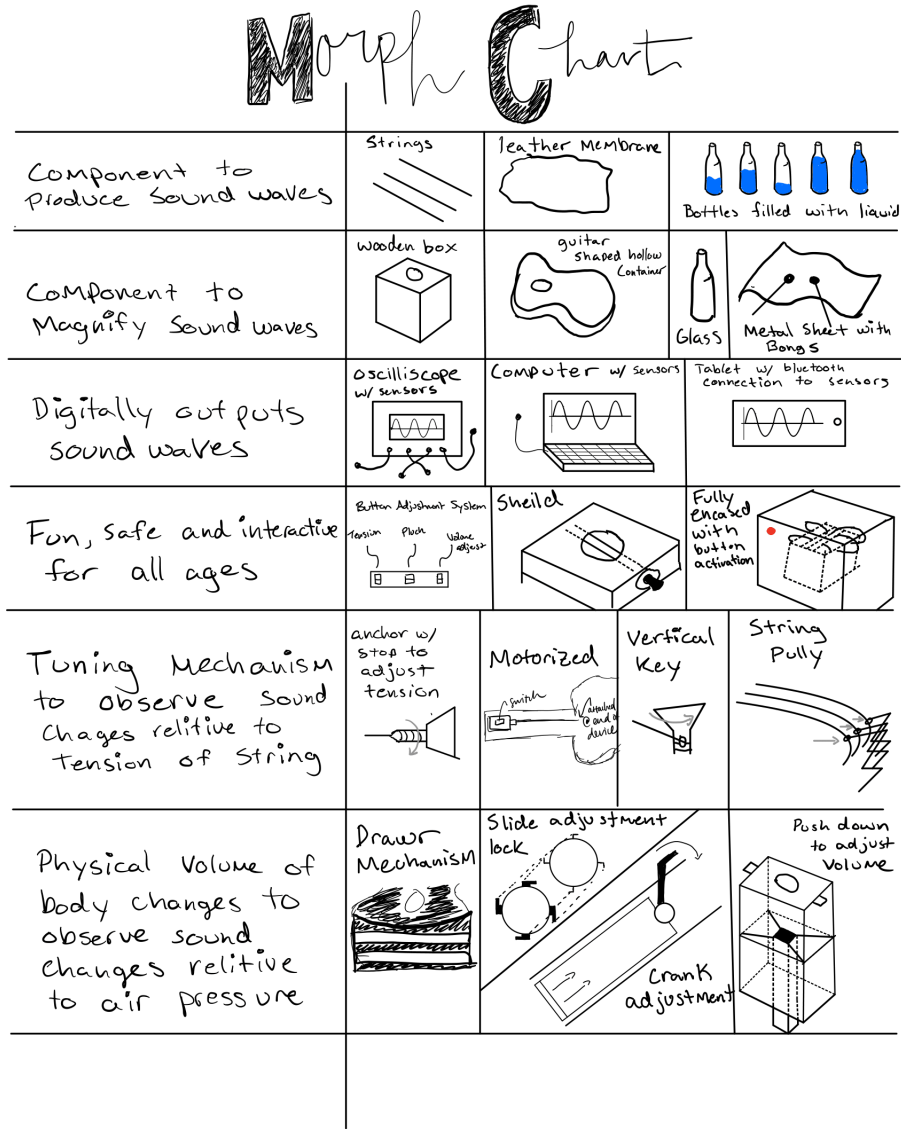 Morph Chart
Component to
produce Sound waves
Strings
leather Membrane
Bottles filled with liquid
Component to
Magnify Sound waves
wooden box
guitar
shaped hollow
Container
Glass
Metal Sheet with
Bongs
Digitally outputs
sound waves
oscilliscope
w/ sensors
Computer w/ sensors
Tablet w/ bluetooth
connection to sensors
Fun, safe and interactive
for all ages
Button Adjustment System
Tension
Pluck
Volume
adjust
Sheild
Fully
encased
with
button
activation
Tuning Mechanism
to observe sound
Chages relitive to
Tension of String
anchor w/
stop to
adjust
tension
Motorized
switch
attached
@ end of
device
Vertical
Key
String
Pully
Physical Volume of
body changes to
observe sound
changes relitive
to air pressure
Drawr
Mechanism
Slide adjustment
lock
Crank
adjustment
Push down
to adjust
Volume